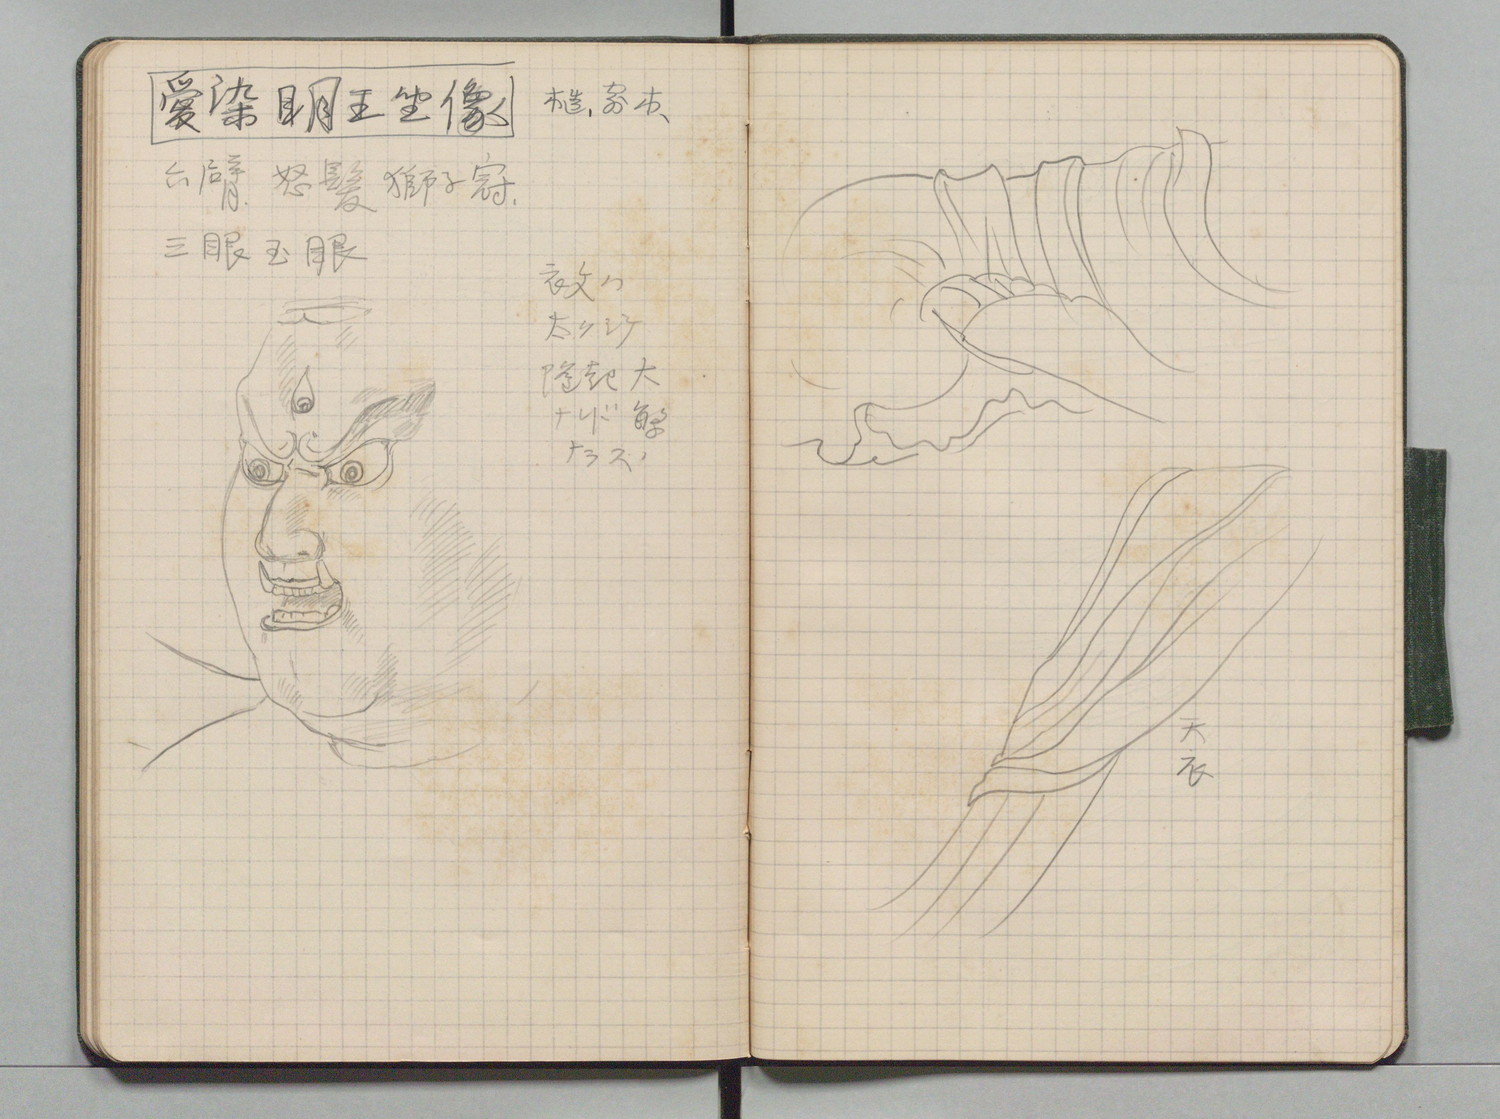 愛染明王坐像
木造、寄木、
六臂 怒髪 獅子冠、
三眼玉眼
衣文ハ
太ク シテ
隆起 大
ナレド 繁
ナラズ、
天
衣